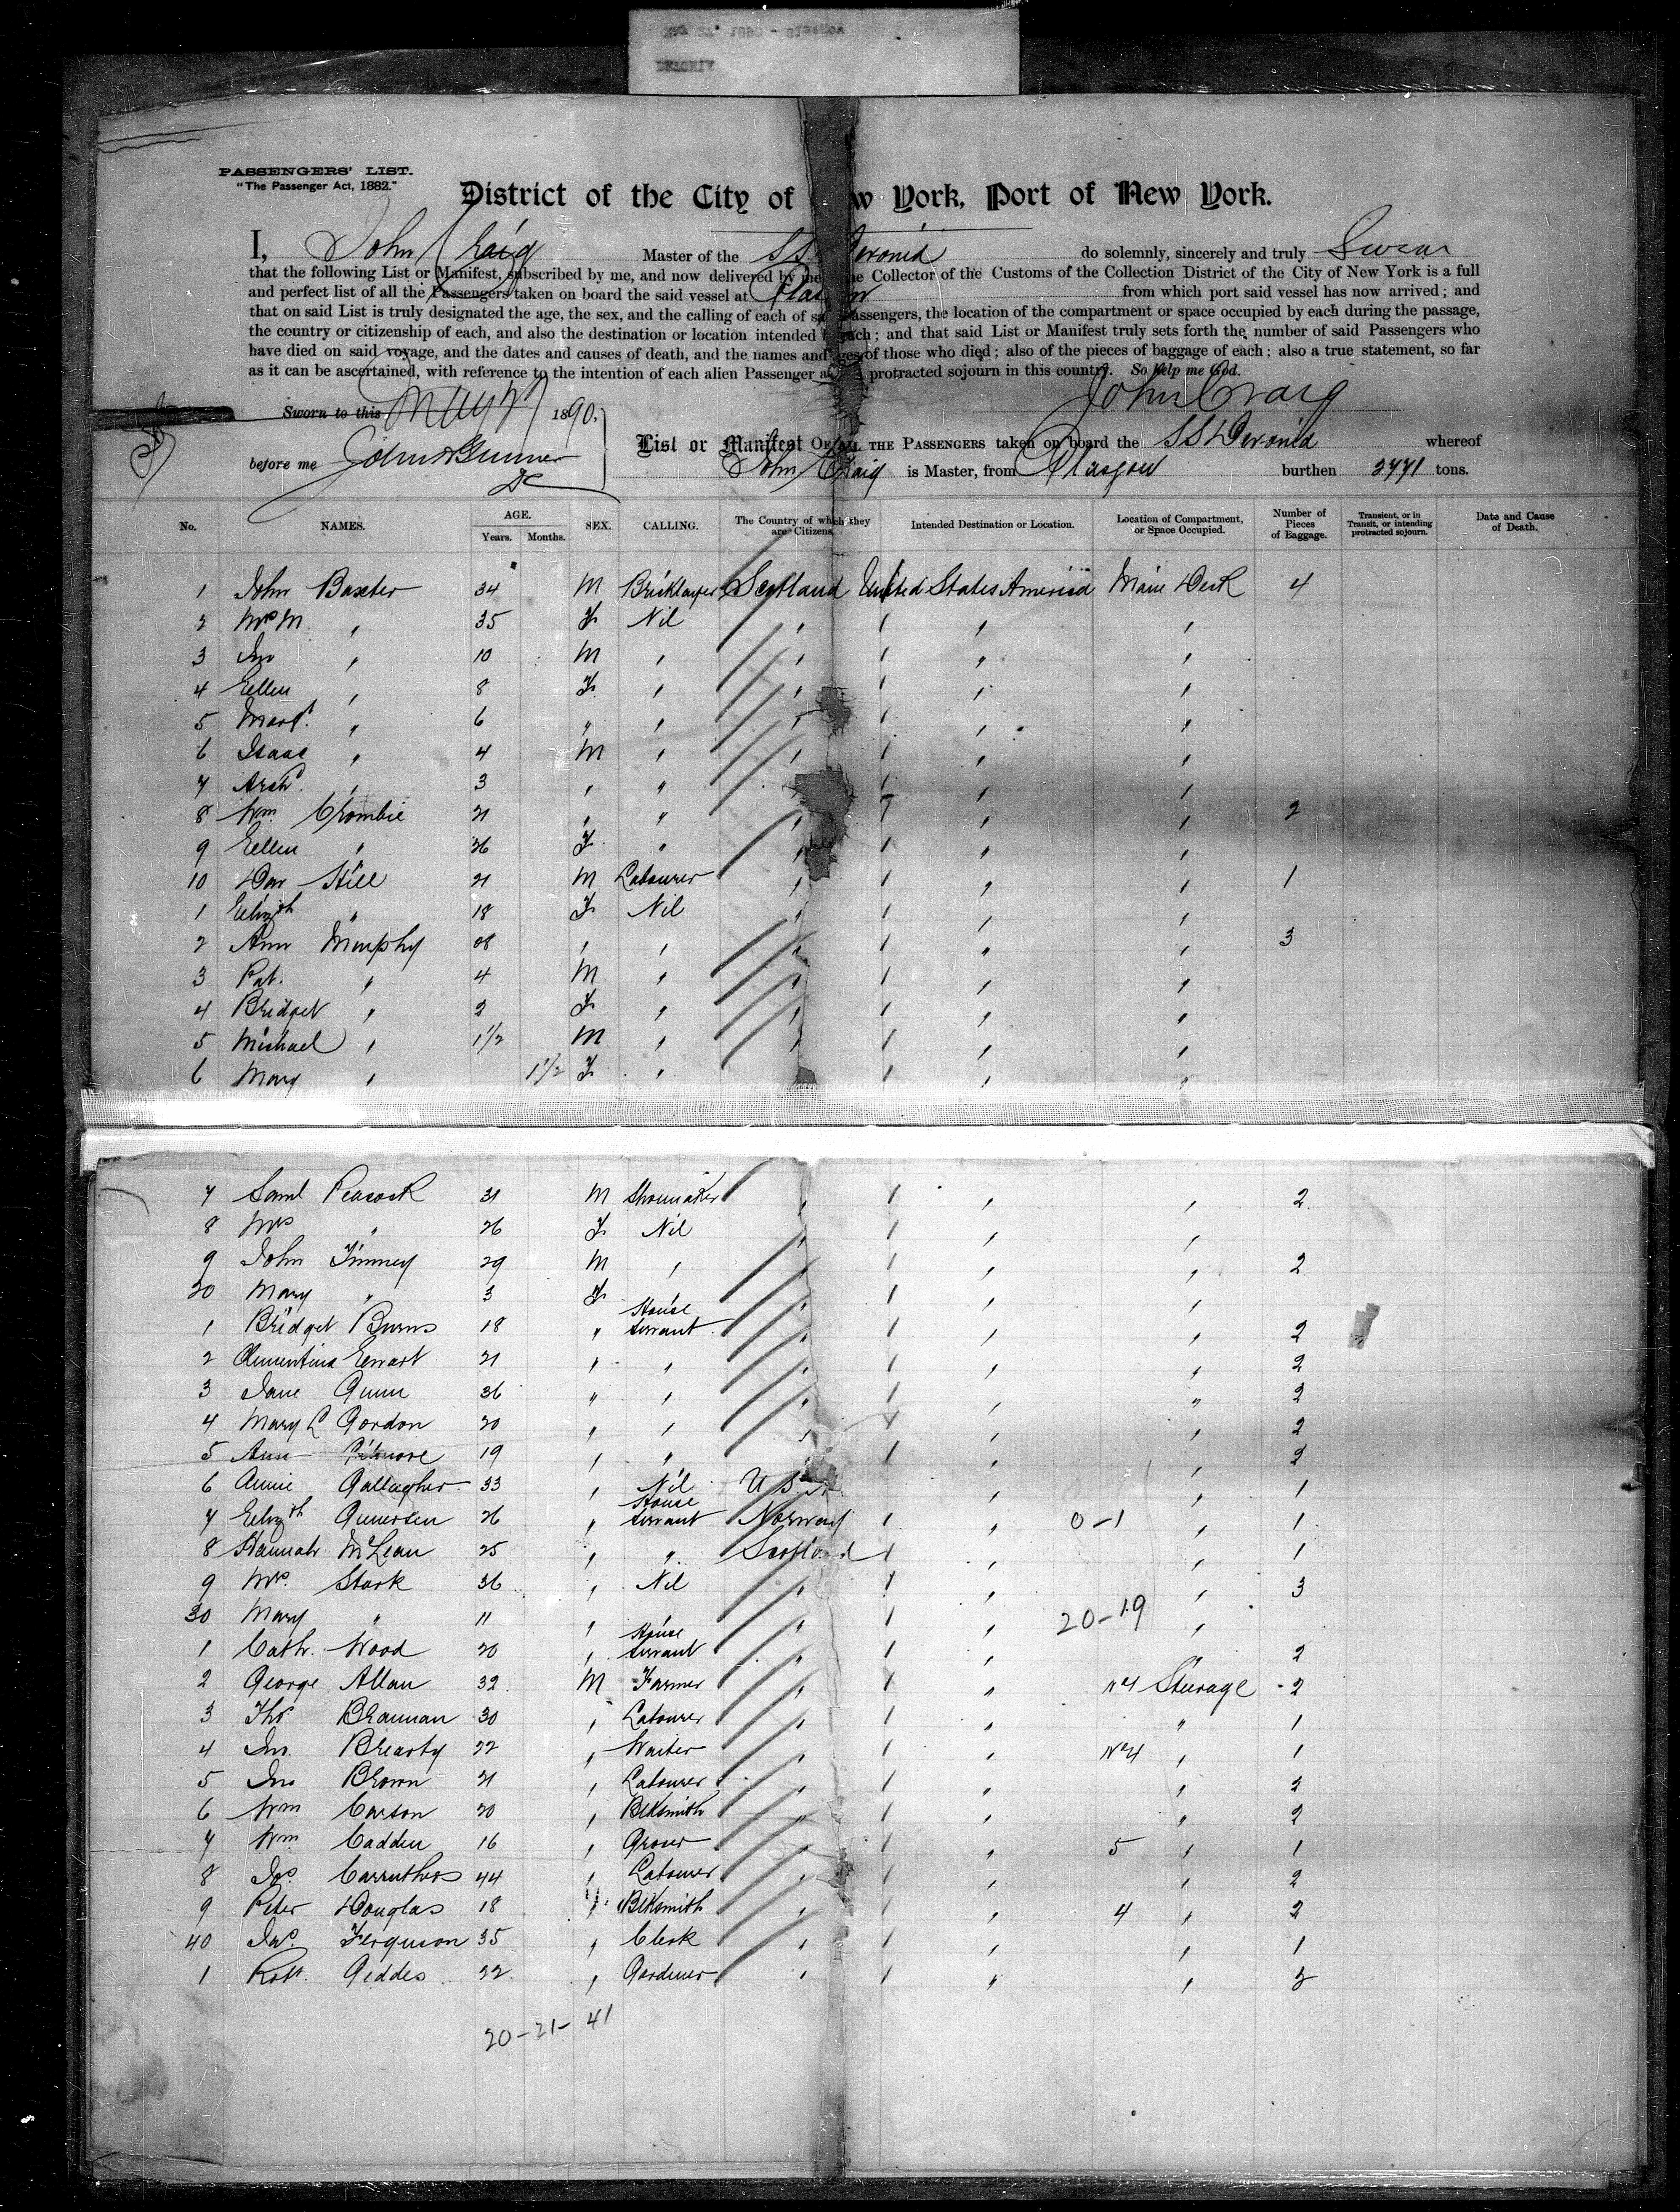 PASSENGERS' LIST.
"The Passenger Act, 1882."
District of the City of New York, Port of New York.
I, John Craig Master of the SS Devonia do solemnly, sincerely and truly Swear
that the following List or Manifest, subscribed by me, and now delivered by me the Collector of the Customs of the Collection District of the City of New York is a full
and perfect list of all the Passengers taken on board the said vessel at Glasgow from which port said vessel has now arrived; and
that on said List is truly designated the age, the sex, and the calling of each of said Passengers, the location of the compartment or space occupied by each during the passage,
the country or citizenship of each, and also the destination or location intended by each; and that said List or Manifest truly sets forth the number of said Passengers who
have died on said voyage, and the dates and causes of death, and the names and ages of those who died; also of the pieces of baggage of each; also a true statement, so far
as it can be ascertained, with reference to the intention of each alien Passenger as to protracted sojourn in this country. So help me God.
John Craig
Sworn to this May 1890.
before me
List or Manifest OF ALL THE PASSENGERS taken on board the SS Devonia whereof
John Craig is Master, from Glasgow burthen 2771 tons.
No. NAMES. AGE. Years. Months. SEX. CALLING. The Country of which they are Citizens. Intended Destination or Location. Location of Compartment, or Space Occupied. Number of Pieces of Baggage. Transient, or in Transit, or intending protracted sojourn. Date and Cause of Death.
1 John Baxter 34 M Bricklayer Scotland United States America Main Deck 4
2 Mrs M " 35 F Nil " " " "
3 Jno " 10 M " " " " "
4 Ellen " 8 F " " " " "
5 Margt " 6 " " " " " "
6 Isaac " 4 M " " " " "
7 Archd " 3 " " " " " "
8 Wm Crombie 21 " " " " " " 2
9 Ellen " 26 F " " " " "
10 Dav Still 21 M Labourer " " " " 1
1 Elizth " 18 F Nil " " " "
2 Ann Murphy 28 " " " " " " 3
3 Pat. " 4 M " " " " "
4 Bridget " 2 F " " " " "
5 Michael " 1 1/2 M " " " " "
6 Mary " 1 1/2 F " " " " "
7 Saml Peacock 31 M Shoemaker " " " " 2
8 Mrs " 26 F Nil " " " "
9 John Finney 29 M " " " " " 2
20 Mary " 3 F " " " "
1 Bridget Burns 18 " House servant " " " " 2
2 Clementina Ewart 21 " " " " " " 2
3 Jane Gunn 36 " " " " " " 2
4 Mary C Gordon 20 " " " " " " 2
5 Ann 19 " " " " " 2
6 Annie Gallagher 33 " Nil U S A " " 1
7 Elizth 26 " House servant Norway " " 0-1 " 1
8 Hannah McLean 25 " " Scotland " " " 1
9 Mrs. Stark 36 " Nil " " " " 3
30 Mary " 11 " " " " 20-19 "
1 Cath. Wood 20 " House servant " " " " 2
2 George Allan 32 M Farmer " " " No 4 Steerage 2
3 Thos Brannan 30 " Labourer " " " " 1
4 Jno. Brearty 22 " Waiter " " " No 4 " 1
5 Jno Brown 21 " Labourer " " " " 2
6 Wm Carson 20 " Blksmith " " " " 2
7 Wm Cadden 16 " Grocer " " " 5 " 1
8 Jas. Carruthers 44 " Labourer " " " " 2
9 Peter Douglas 18 " Blksmith " " " 4 " 2
40 Jas. Ferguson 35 " Clerk " " " " 1
1 Robt. Geddes 22 " Gardener " " " " 2
20-21- 41